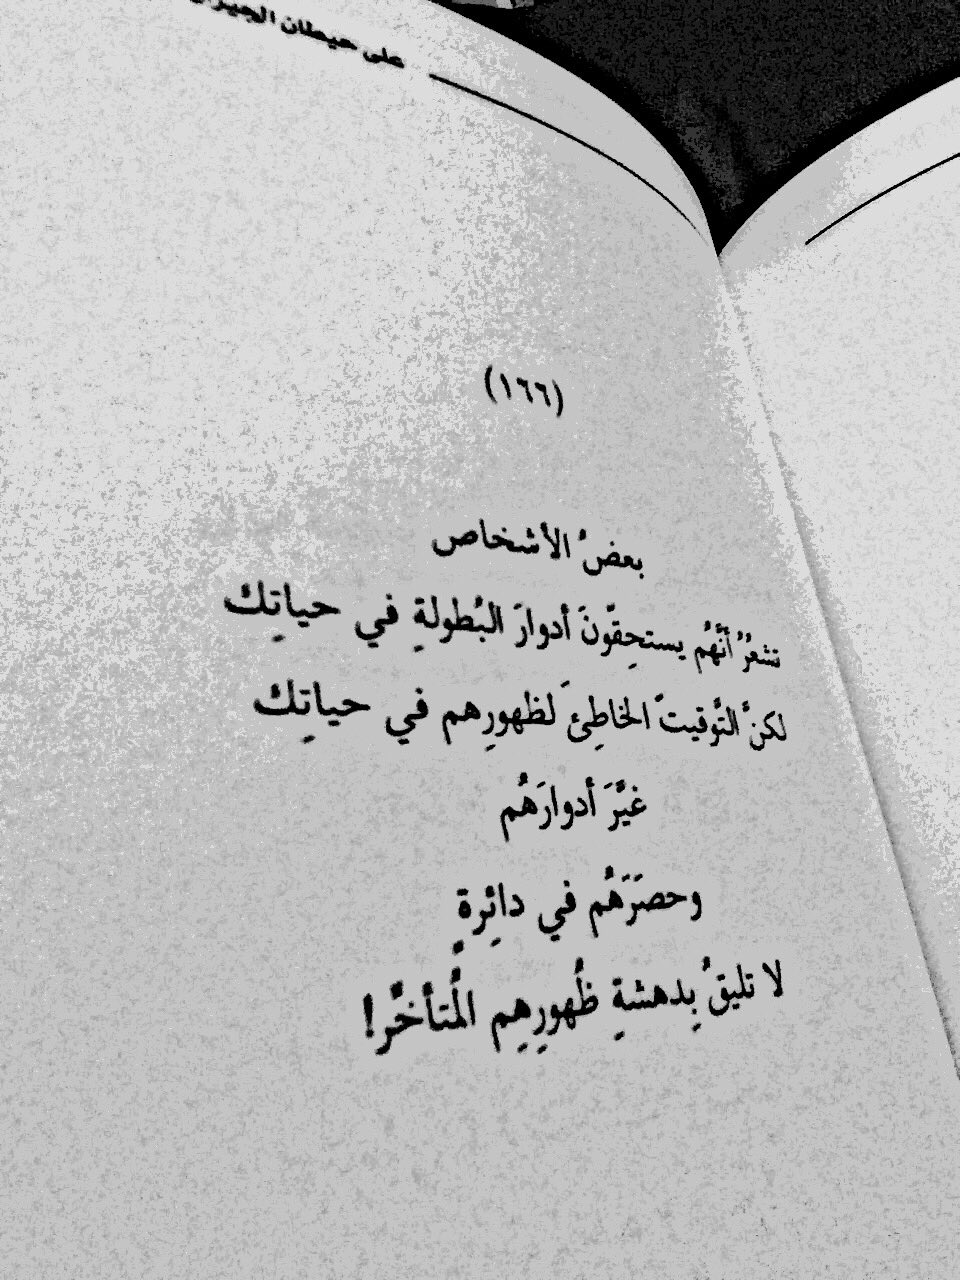 على حيطان
(١٦٦)
بعضُ الأشخاص
تشعُرُ أنَّهُم يستحِقّونَ أدوارَ البُطولةِ في حياتِك
لكنَّ التَّوقيتَ الخاطِئَ لظهورِهم في حياتِك
غيَّرَ أدوارَهُم
وحصَرَهُم في دائِرةٍ
لا تليقُ بِدهشةِ ظُهورِهِم المُتأخِّر!